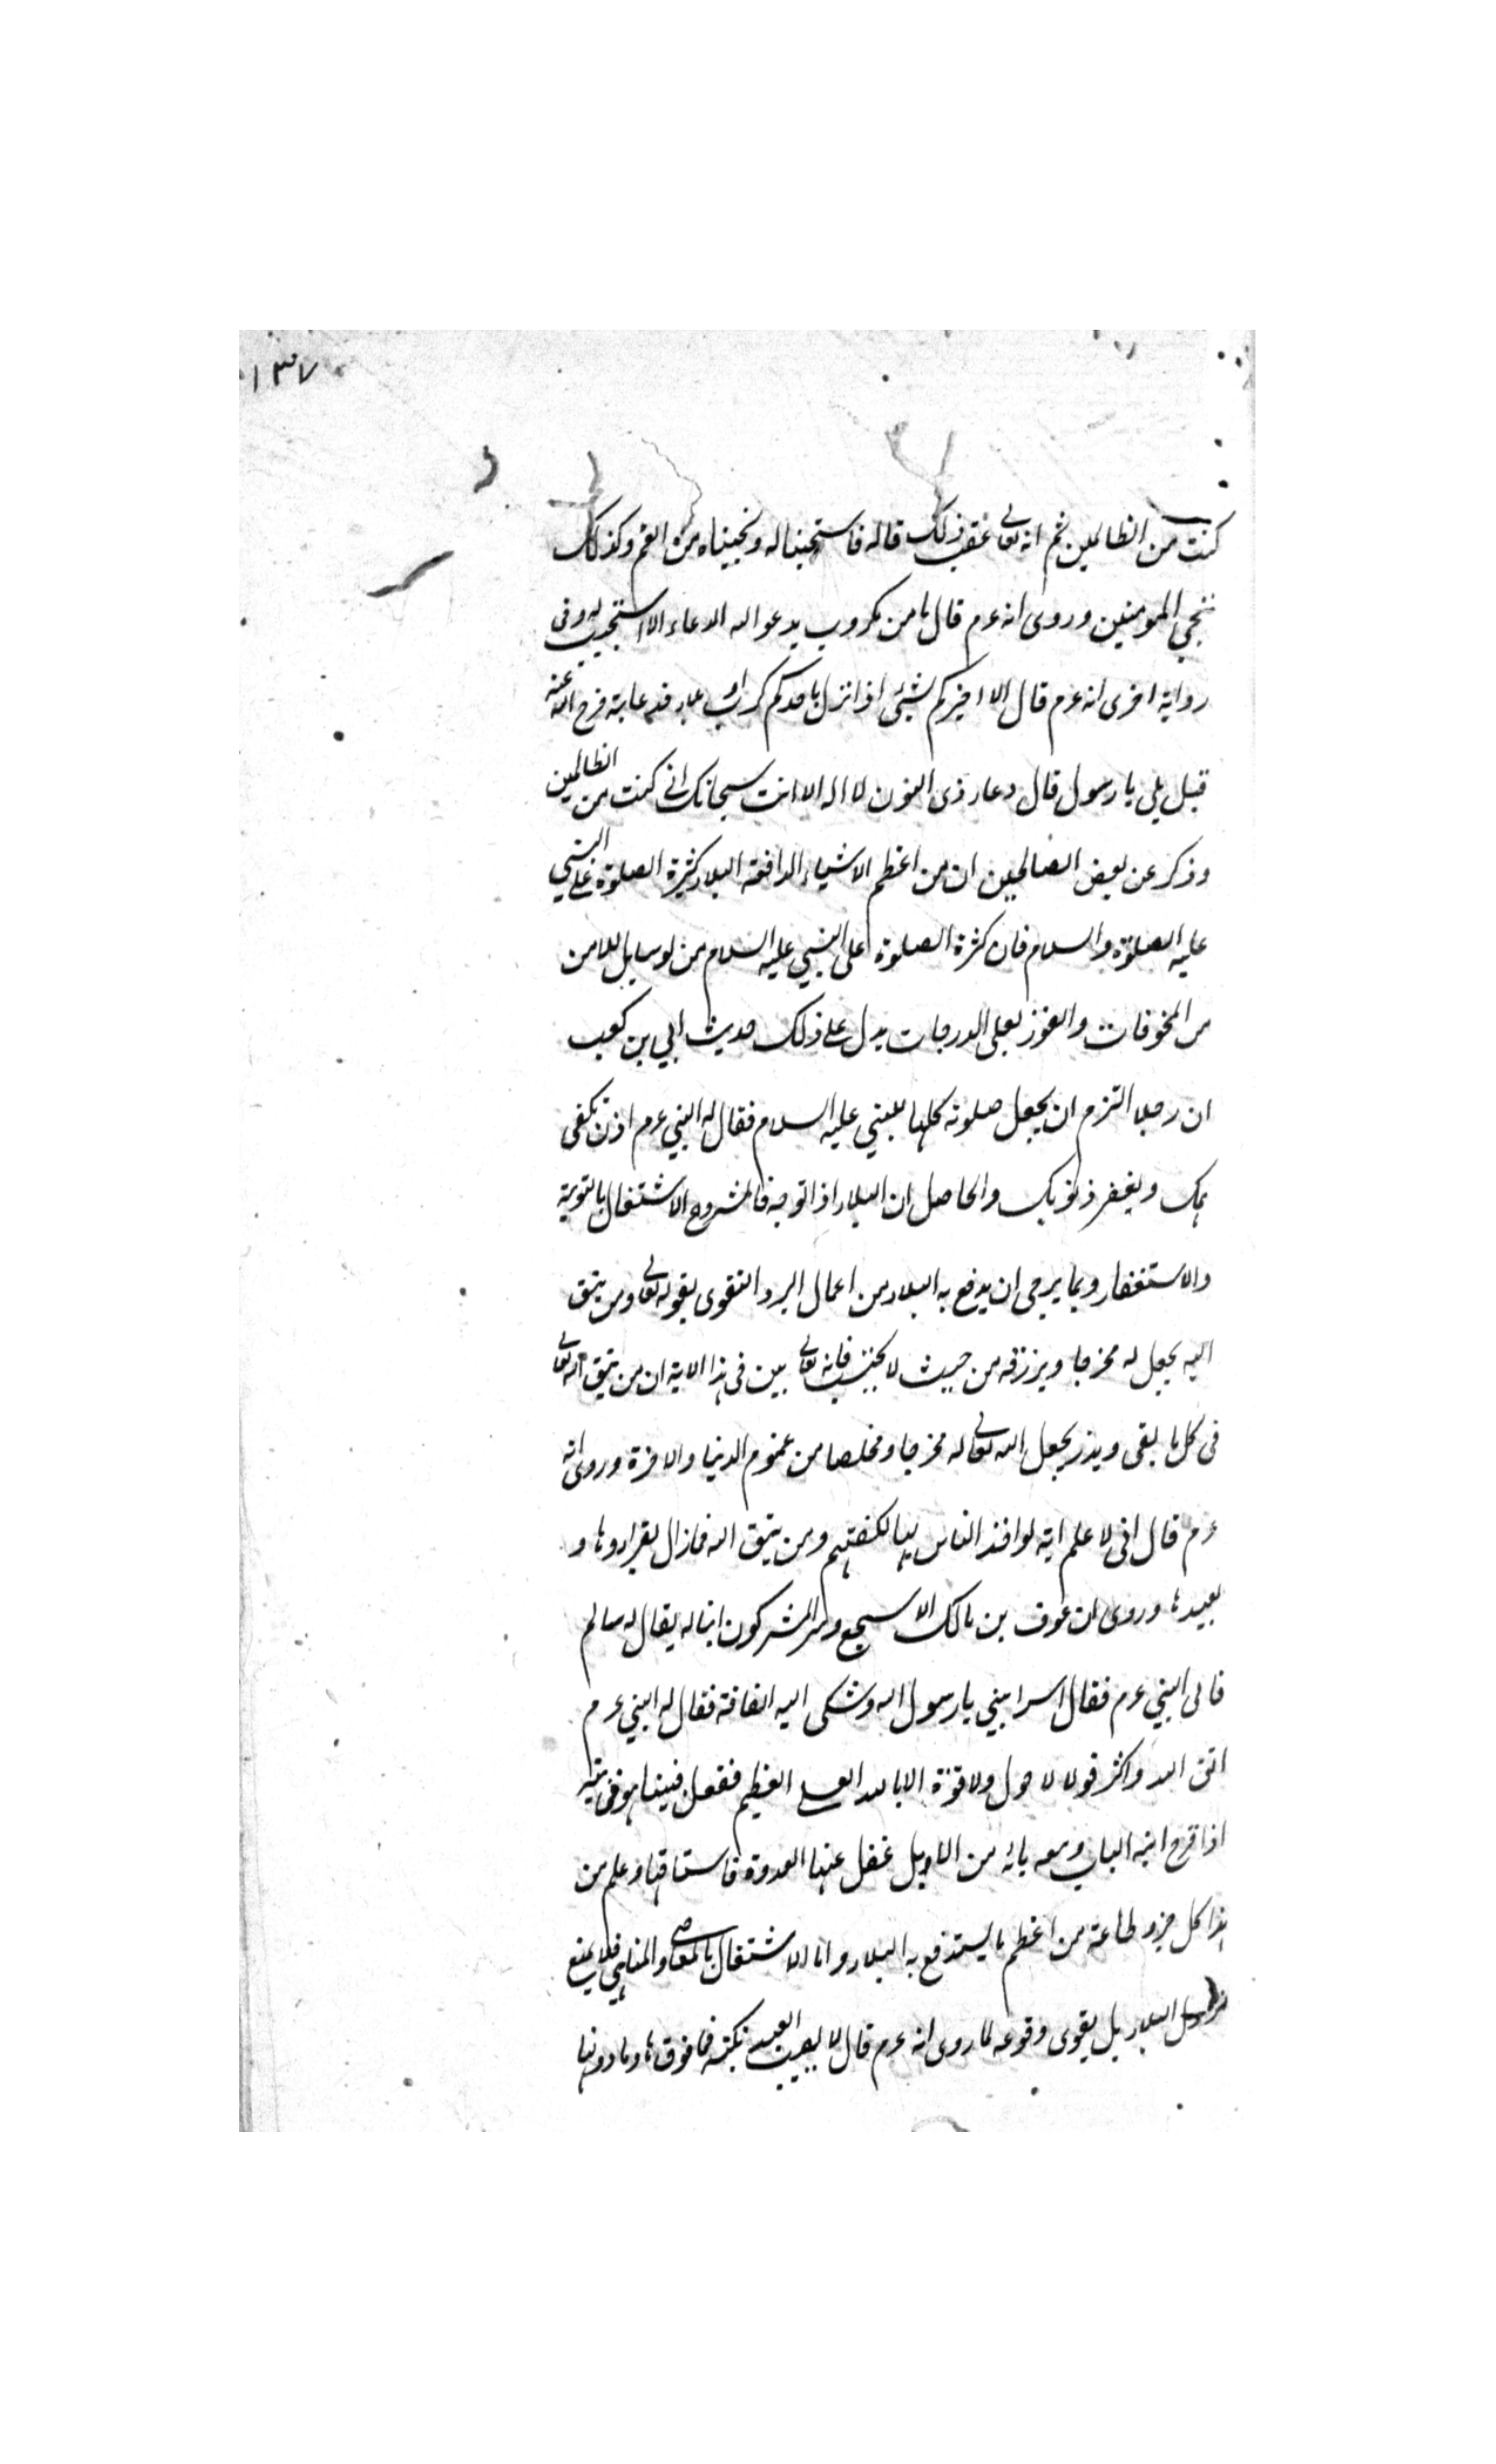 ١٣٧
كنت من الظالمين ثم انه تعالى عقيب ذلك قاله فاستجبنا له ونجيناه من الغم وكذلك
ننجي المومنين وروى انه عم قال ما من مكروب يدعو الله الدعاء الا استجيب له وفى
رواية اخرى انه عم قال الا اخبركم بشئى اذا نزل باحدكم كرب او بلاء فدعا به فرج الله عنه
قيل بلى يا رسول قال دعاء ذى النون لا اله الا انت سبحانك انى كنت من الظالمين
وذكر عن بعض الصالحين ان من اعظم الاشياء الدافعة البلاء كثرة الصلوة على النبي
عليه الصلوة والسلام فان كثرة الصلوة على النبي عليه السلام من لوسايل للامن
من المخوفات والفوز بعلى الدرجات يدل على ذلك حديث ابي بن كعب
ان رجلا التزم ان يجعل صلوته كلها للنبي عليه السلام فقال له النبي عم اذن تكفى
همك ويغفر ذنوبك والحاصل ان البلاء اذا توجه فالمشروع الاشتغال بالتوبة
والاستغفار وبما يرجى ان يدفع به البلاء من اعمال البر والتقوى بقوله تعالى ومن يتق
الله يجعل له مخرجا ويرزقه من حيث لا يحتسب فانه تعالى بين فى هذا الاية ان من يتق الله تعالى
فى كل ما يبقى ويذر يجعل الله تعالى له مخرجا ومخلصا من غموم الدنيا والاخرة وروى انه
عم قال انى لا علم اية لو اخذ الناس بها لكفتهم ومن يتق الله فمازال يقراءوها و
يعيدها وروى ان عوف بن مالك الاسجع وسر المشركون ابنا له يقال له سالم
فاتى النبي عم فقال اسر ابني يا رسول الله وشكى اليه الفاقة فقال له النبي عم
اتق الله واكثر قولا لا حول ولا قوة الا بالله العلى العظيم ففعل فبينا هو فى بيته
اذا قرع ابنه الباب ومعه مائه من الابل غفل عنها العدوة فاستاقها وعلم من
هذا كل خير وطاعة من اعظم ما يستدفع به البلاء واما الاشتغال بالمعاصى والمناهى فلا يمنع
نزول البلاء بل يقوى وقوعه لما روى انه عم قال لا يصيب العبد نكبة فما فوقها وما دونها